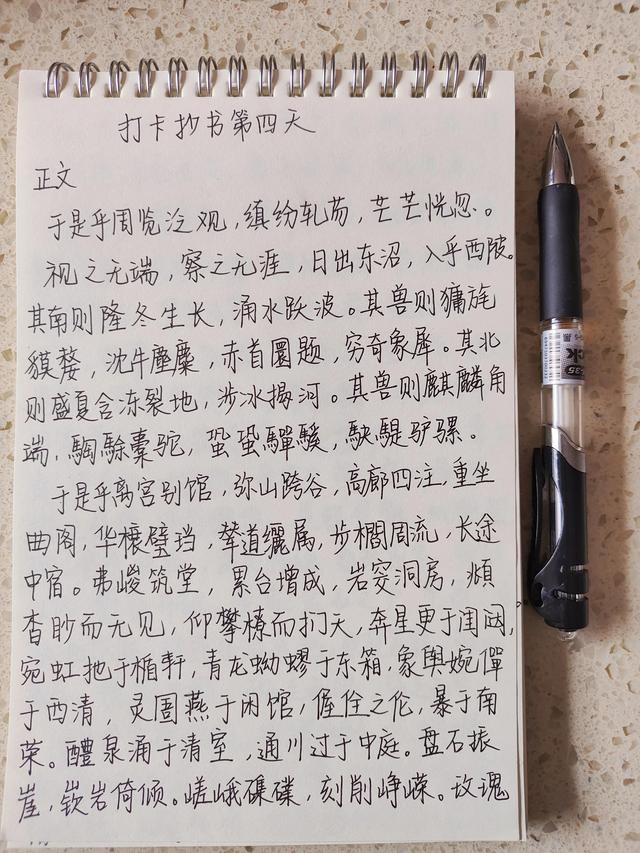 打卡抄书第四天
正文
于是乎周览泛观,缜纷轧芴,芒芒恍忽。
视之无端,察之无涯,日出东沼,入乎西陂。
其南则隆冬生长,涌水跃波。其兽则㺎旄
貘嫠,沈牛麈麋,赤首圜题,穷奇象犀。其北
则盛夏含冻裂地,涉冰揭河。其兽则麒麟角
端,騊駼橐驼,蛩蛩驒騱,駃騠驴骡。
于是乎离宫别馆,弥山跨谷,高廊四注,重坐
曲阁,华榱璧珰,辇道纚属,步櫩周流,长途
中宿。弗嵕筑堂,累台增成,岩突洞房,頫
杳眇而无见,仰攀橑而扪天,奔星更于闺闼,
宛虹扡于楯轩,青龙蚴蟉于东箱,象舆婉僤
于西清,灵圄燕于闲馆,偓佺之伦,暴于南
荣。醴泉涌于清室,通川过于中庭。盘石振
崖,嵚岩倚倾。嵯峨磼碟,刻削峥嵘。玫瑰